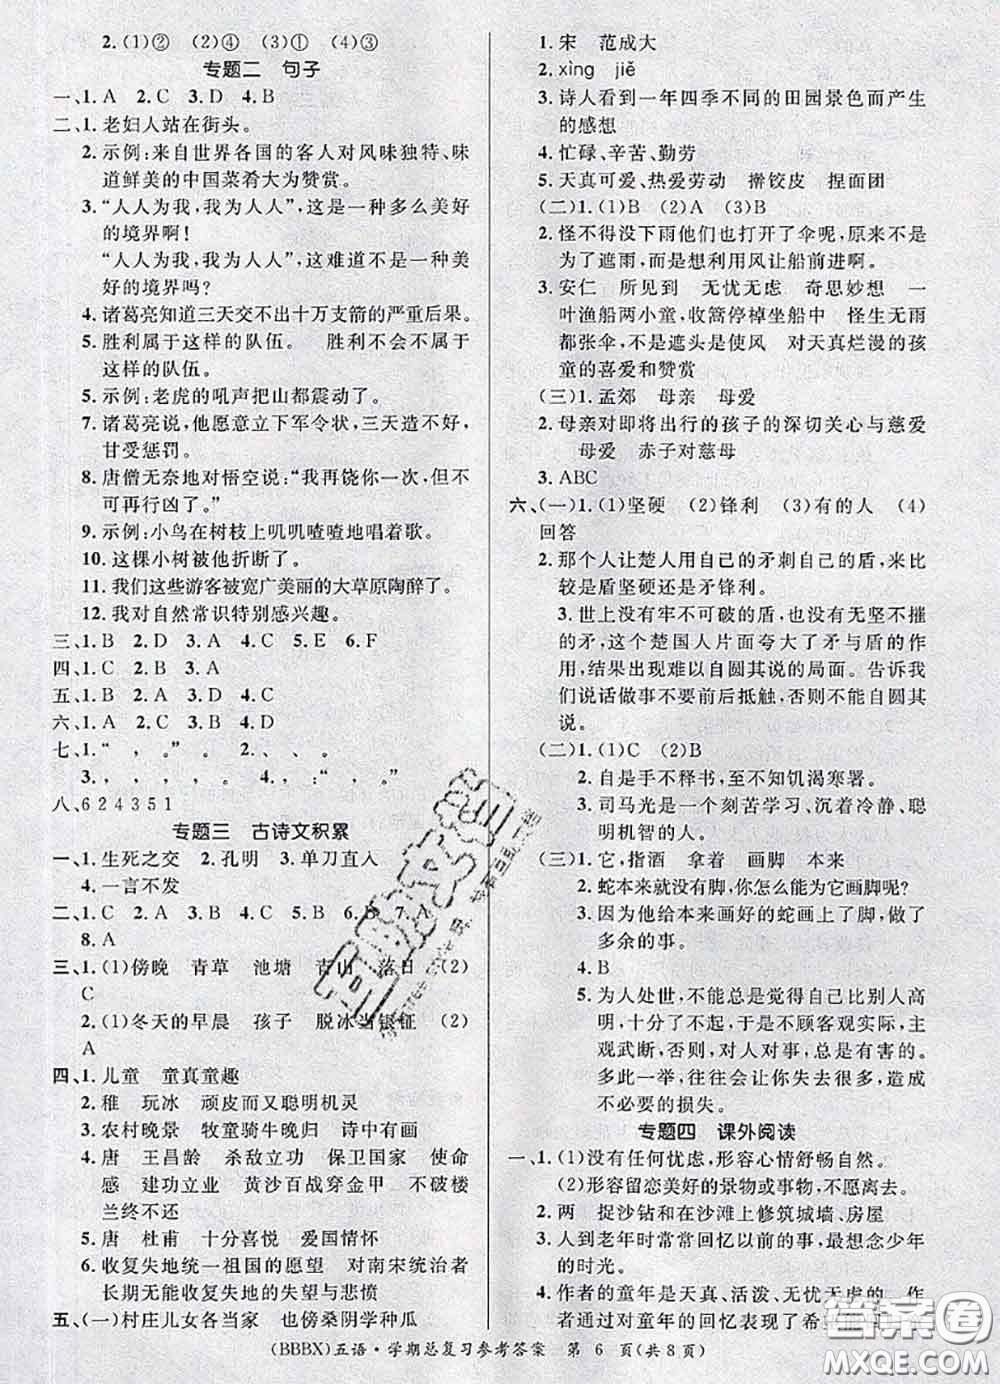 2.(1)② (2)④ (3)① (4)③
专题二 句子
一、1. A 2. C 3. D 4. B
二、1. 老妇人站在街头。
2. 示例:来自世界各国的客人对风味独特、味
道鲜美的中国菜肴大为赞赏。
3. “人人为我,我为人人”,这是一种多么美好
的境界啊!
“人人为我,我为人人”,这难道不是一种美
好的境界吗?
4. 诸葛亮知道三天交不出十万支箭的严重后果。
5. 胜利属于这样的队伍。 胜利不会不属于
这样的队伍。
5. 示例:老虎的吼声把山都震动了。
7. 诸葛亮说,他愿意立下军令状,三天造不好,
甘受惩罚。
8. 唐僧无奈地对悟空说:“我再饶你一次,但不
可再行凶了。”
9. 示例:小鸟在树枝上叽叽喳喳地唱着歌。
10. 这棵小树被他折断了。
11. 我们这些游客被宽广美丽的大草原陶醉了。
12. 我对自然常识特别感兴趣。
三、1. B 2. D 3. A 4. C 5. E 6. F
四、1. C 2. B 3. A
五、1. D 2. A 3. B 4. C
六、1. A 2. C 3. B 4. D
七、1. “ , 。” 。 2. 、 。
3. , , , , 。 4. ,:“ , 。”
八、6 2 4 3 5 1
专题三 古诗文积累
一、1. 生死之交 2. 孔明 3. 单刀直入
4. 一言不发
二、1. C 2. A 3. B 4. C 5. B 6. B 7. A
8. A
三、1. (1)傍晚 青草 池塘 青山 落日 (2)
C
2. (1)冬天的早晨 孩子 脱冰当银钲 (2)
A
四、1. 儿童 童真童趣
2. 稚 玩冰 顽皮而又聪明机灵
3. 农村晚景 牧童骑牛晚归 诗中有画
4. 唐 王昌龄 杀敌立功 保卫国家 使命
感 建功立业 黄沙百战穿金甲 不破楼
兰终不还
5. 唐 杜甫 十分喜悦 爱国情怀
6. 收复失地统一祖国的愿望 对南宋统治者
长期无能收复失地的失望与悲愤
五、(一)村庄儿女各当家 也傍桑阴学种瓜
1. 宋 范成大
2. xìng jiě
3. 诗人看到一年四季不同的田园景色而产生
的感想
4. 忙碌、辛苦、勤劳
5. 天真可爱、热爱劳动 擀饺皮 捏面团
(二)1. (1)B (2)A (3)B
2. 怪不得没下雨他们也打开了伞呢,原来不是
为了遮雨,而是想利用风让船前进啊。
3. 安仁 所见到 无忧无虑 奇思妙想 一
叶渔船两小童,收篙停棹坐船中 怪生无雨
都张伞,不是遮头是使风 对天真烂漫的孩
童的喜爱和赞赏
(三)1. 孟郊 母亲 母爱
2. 母亲对即将出行的孩子的深切关心与慈爱
母爱 赤子对慈母
3. ABC
六、(一)1. (1)坚硬 (2)锋利 (3)有的人 (4)
回答
2. 那个人让楚人用自己的矛刺自己的盾,来
比较是盾坚硬还是矛锋利。
3. 世上没有牢不可破的盾,也没有无坚不摧
的矛,这个楚国人片面夸大了矛与盾的作
用,结果出现难以自圆其说的局面。告诉我
们说话做事不要前后抵触,否则不能自圆其
说。
(二)1. (1)C (2)B
2. 自是手不释书,至不知饥渴寒暑。
3. 司马光是一个刻苦学习、沉着冷静、聪
明机智的人。
(三)1. 它,指酒 拿着 画脚 本来
2. 蛇本来就没有脚,你怎么能为它画脚呢?
3. 因为他给本来画好的蛇画上了脚,做了
多余的事。
4. B
5. 为人处世,不能总是觉得自己比别人高
明,十分了不起,于是不顾客观实际,主
观武断,否则,对人对事,都是有害的。
多此一举,往往会让你失去很多,造成
不必要的损失。
专题四 课外阅读
一、1. (1)没有任何忧虑,形容心情舒畅自然。
(2)形容留恋美好的景物或事物,不愿离去。
2. 两 捉沙钻和在沙滩上修筑城墙、房屋
3. 人到老年时常常回忆以前的事,最想念少年
的时光。
4. 作者的童年是天真、活泼、无忧无虑的,作
者通过对童年的回忆表现了
(BBBX)五语·学期总复习参考答案 第 6 页(共 8 页)
答案圈